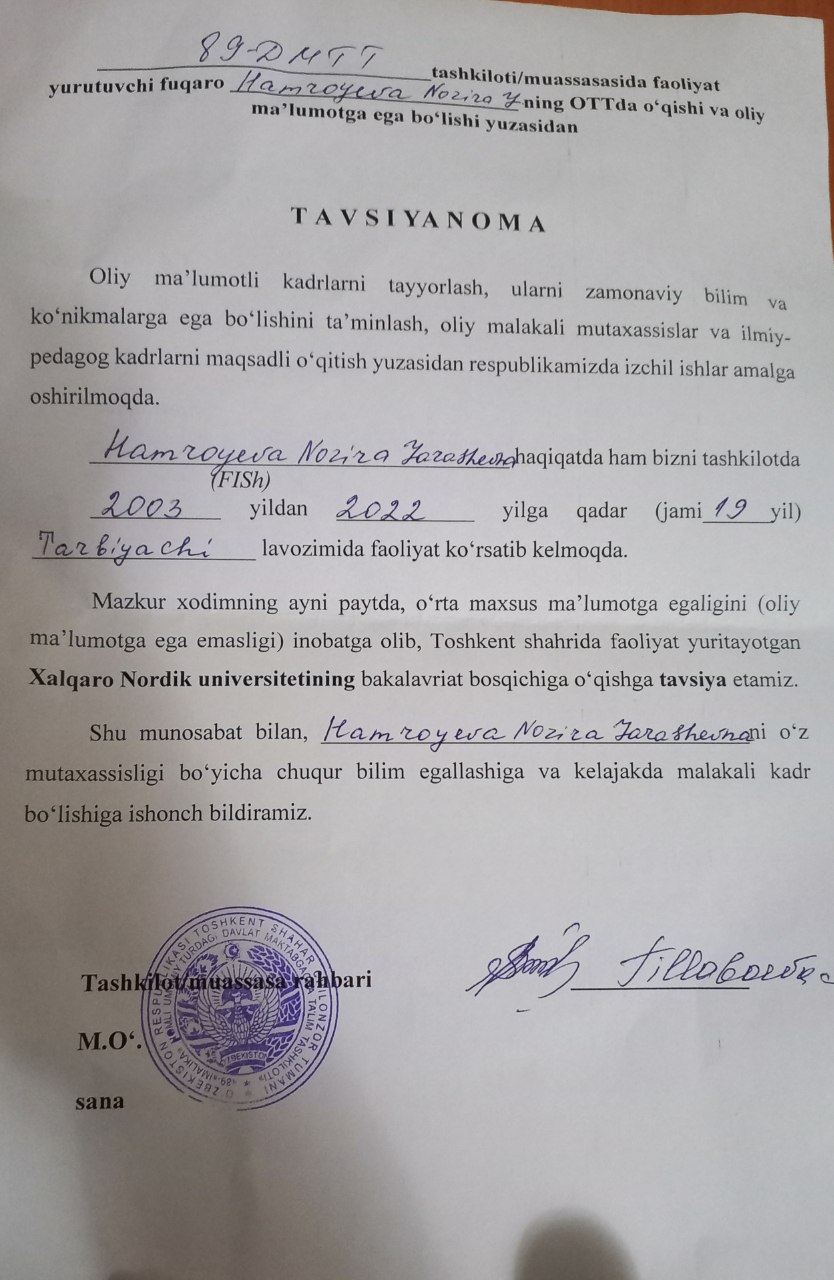 89-DMTT tashkiloti/muassasasida faoliyat
yurutuvchi fuqaro Hamroyeva Nozira J ning OTTda o‘qishi va oliy
ma’lumotga ega bo‘lishi yuzasidan
TAVSIYANOMA
Oliy ma’lumotli kadrlarni tayyorlash, ularni zamonaviy bilim va
ko‘nikmalarga ega bo‘lishini ta’minlash, oliy malakali mutaxassislar va ilmiy-
pedagog kadrlarni maqsadli o‘qitish yuzasidan respublikamizda izchil ishlar amalga
oshirilmoqda.
Hamroyeva Nozira Jarashevna haqiqatda ham bizni tashkilotda
(FISh)
2003 yildan 2022 yilga qadar (jami 19 yil)
Tarbiyachi lavozimida faoliyat ko‘rsatib kelmoqda.
Mazkur xodimning ayni paytda, o‘rta maxsus ma’lumotga egaligini (oliy
ma’lumotga ega emasligi) inobatga olib, Toshkent shahrida faoliyat yuritayotgan
Xalqaro Nordik universitetining bakalavriat bosqichiga o‘qishga tavsiya etamiz.
Shu munosabat bilan, Hamroyeva Nozira Jarashevna ni o‘z
mutaxassisligi bo‘yicha chuqur bilim egallashiga va kelajakda malakali kadr
bo‘lishiga ishonch bildiramiz.
Tashkilot/muassasa rahbari
M.O‘.
sana